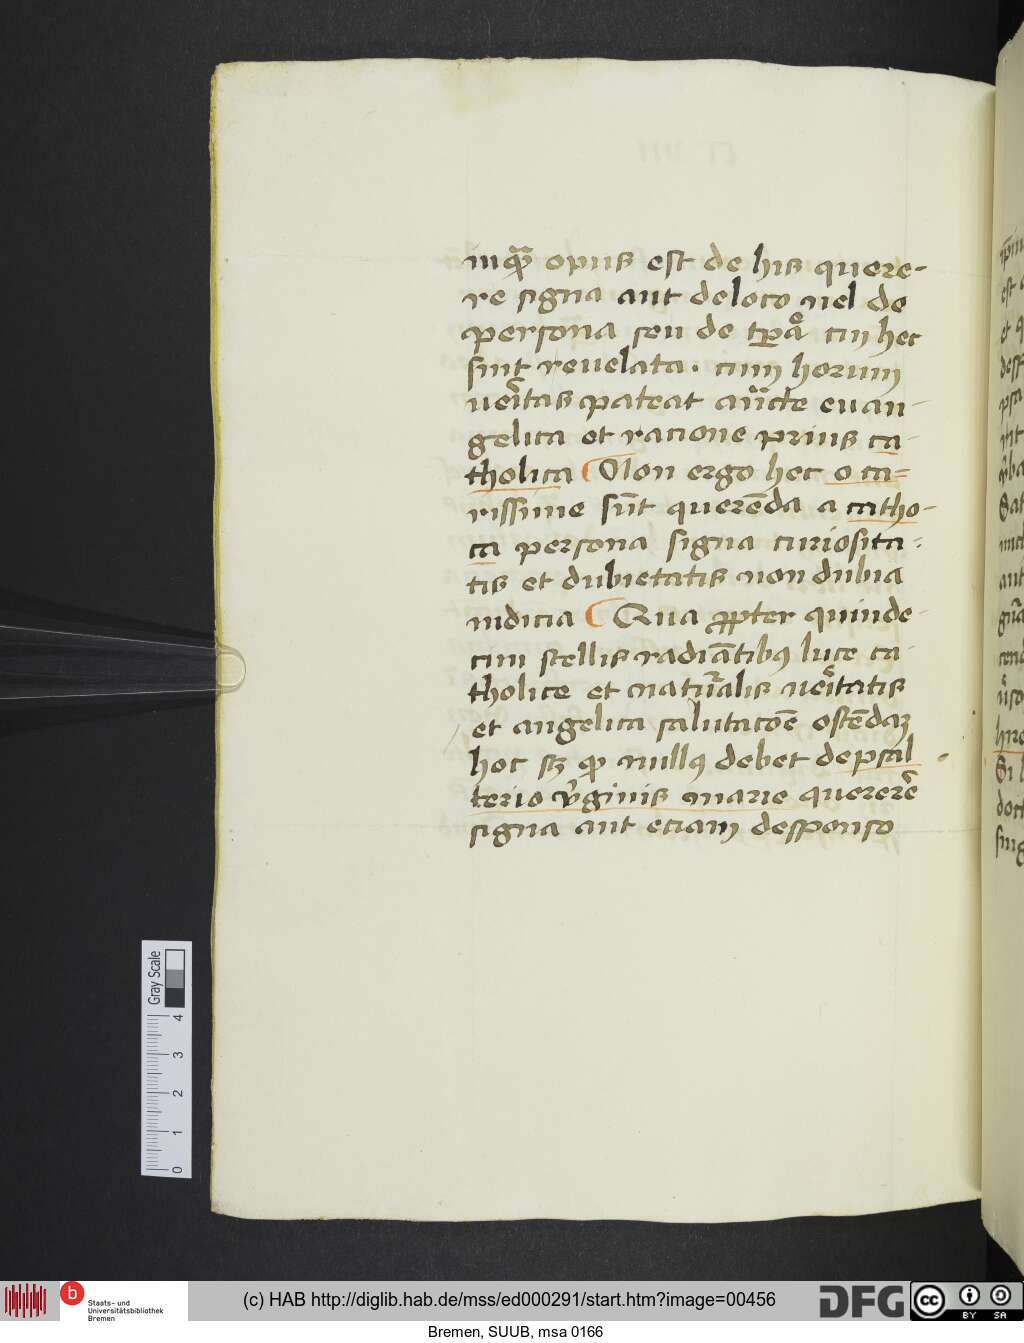 inqͣꝫ opus est de his quere-
re signa aut de loco uel de
persona seu de tp̱e cin hec
sint reuelata. cum horum
ueri̅tas pateat auct̅e euan-
gelica et racione prius ca-
tholica Non ergo hec o ca=
rissime su̅t quere̅da a catho-
ca persona signa curiosita-
tis et dubietatis non dubia
indicia Qua ꝓpter quinde-
cim stellis radia̅tibꝰ luce ca-
tholice et nat̅uralis ueri̅tatis
et angelica salutaco̅e oste̅daꝫ
hoc sꝫ ꝙ nullꝰ debet de psal-
terio v̓ginis marie querere̅
signa aut eciam desponso
Gray Scale
0 1 2 3 4
b Staats- und
Universitätsbibliothek
Bremen
(c) HAB http://diglib.hab.de/mss/ed000291/start.htm?image=00456
DFG
cc BY SA
Bremen, SUUB, msa 0166